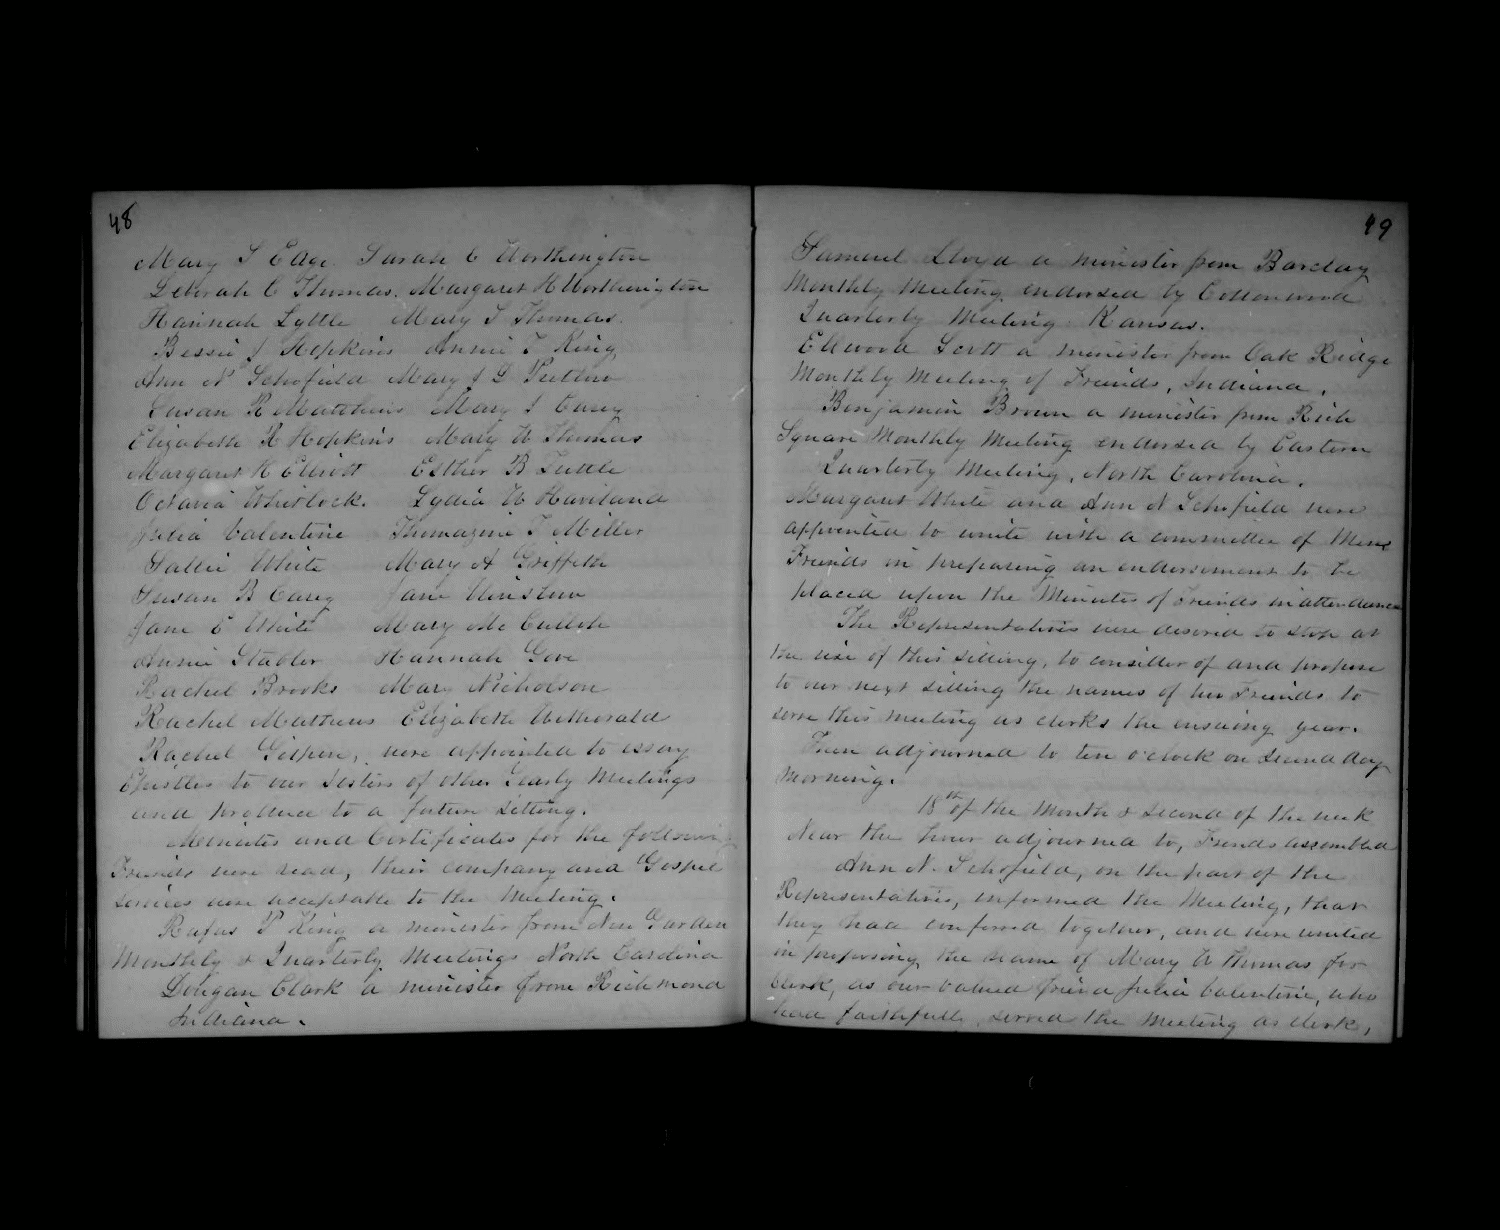 48
Mary S Edge Sarah C Worthington
Deborah C Thomas, Margaret H Worthington
Hannah Lyttle Mary S Thomas.
Bessie J Hopkins Annie T King
Ann N Schofield Mary J D
Susan R Matthews Mary I Carey
Elizabeth R Hopkins Mary W Thomas
Margaret H Elliott Esther B Tuttle
Octavia Whitlock. Lydia W Haviland
Julia Valentine Thomazine T Miller
Sallie White Mary A Griffith
Susan B Carey Jane Winslow
Jane E White Mary
Annie Stabler Hannah Gove
Rachel Brooks Mary Nicholson
Rachel Matthews Elizabeth Wetherald
Rachel were appointed to essay
Epistles to our sisters of other Yearly Meetings
and produce to a future sitting.
Minutes and Certificates for the following
Friends were read, their company and Gospel
services were acceptable to the Meeting.
Rufus P King a minister from New Garden
Monthly & Quarterly Meetings North Carolina
Dougan Clark a minister from Richmond
Indiana.
49
Samuel Lloyd a minister from Barclay
Monthly Meeting endorsed by Cottonwood
Quarterly Meeting Kansas.
Ellwood Scott a minister from Oak Ridge
Monthly Meeting of Friends, Indiana.
Benjamin Brown a minister from Rich
Square Monthly Meeting endorsed by Eastern
Quarterly Meeting, North Carolina.
Margaret White and Ann N Schofield were
appointed to unite with a committee of Mens
Friends in preparing an endorsement to be
placed upon the Minutes of Friends in attendance
The Representatives were desired to stop at
the rise of this sitting, to consider of and propose
to our next sitting the names of two Friends to
serve this meeting as clerks the ensuing year.
Then adjourned to ten o'clock on second day
Morning.
18th of the Month & second of the week
Near the hour adjourned to, Friends assembled
Ann N. Schofield, on the part of the
Representatives, informed the Meeting, that
they had conferred together, and were united
in proposing the name of Mary W Thomas for
Clerk, as our valued friend Julia Valentine, who
had faithfully served the meeting as clerk,